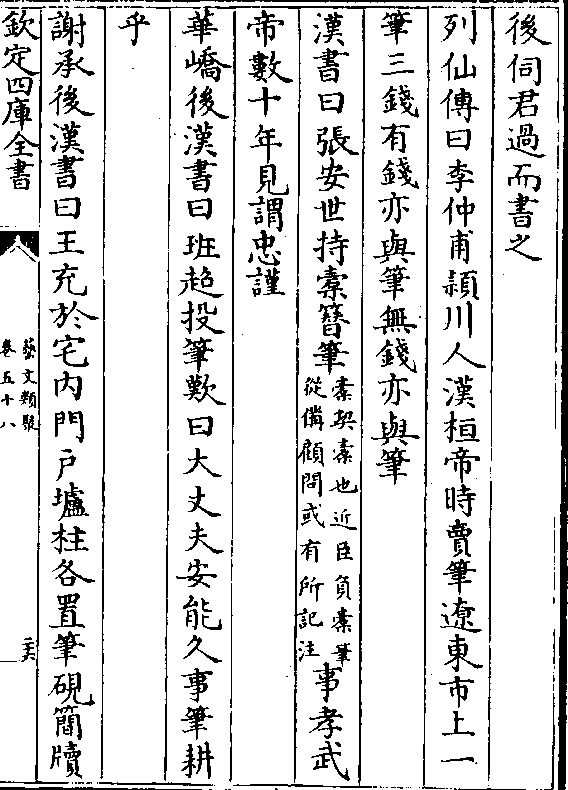 後伺君過而書之
列仙傳曰李仲甫潁川人漢桓帝時賣筆遼東市上一
筆三錢有錢亦與筆無錢亦與筆
漢書曰張安世持橐簪筆橐契橐也近臣負橐簪筆從備顧問或有所記注事孝武
帝數十年見謂忠謹
華嶠後漢書曰班超投筆歎曰大丈夫安能久事筆耕
乎
謝承後漢書曰王充於宅内門户墟柱各置筆硯簡牘
欽定四庫全書
藝文類聚
卷五十八
二六